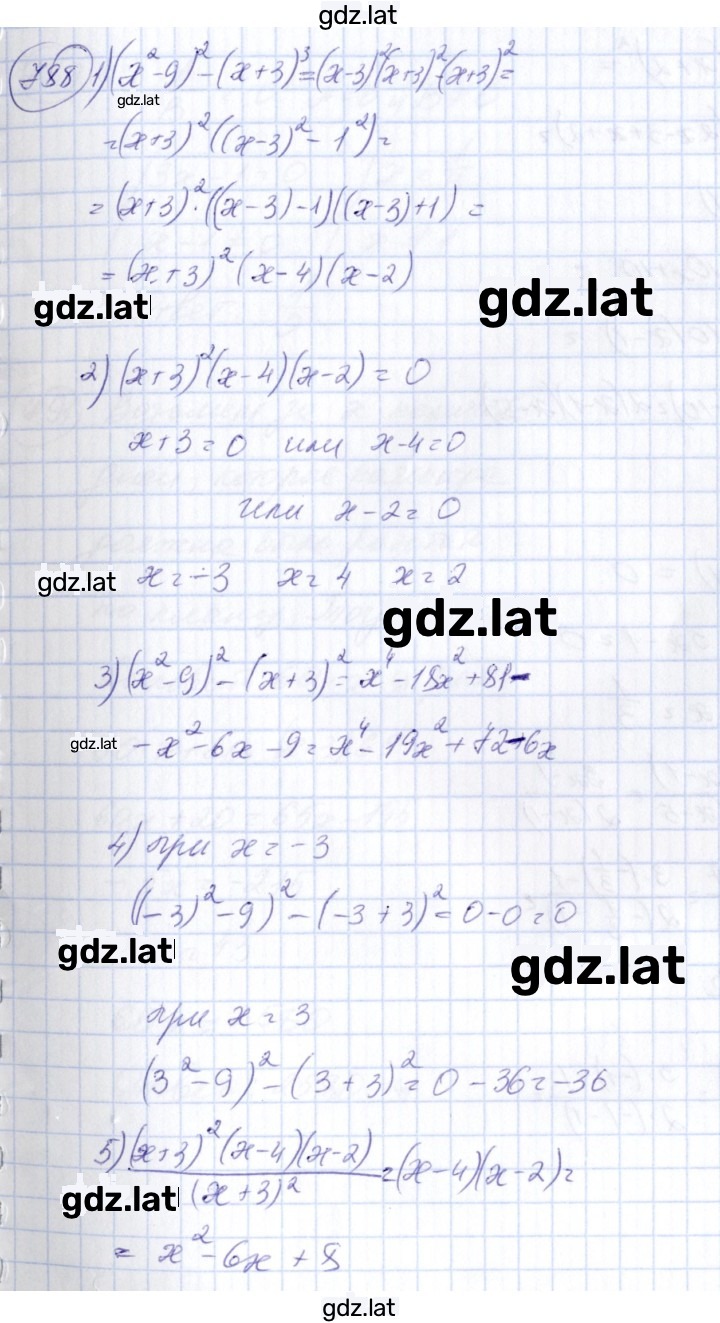 gdz.lat
788 1) (x²-9)² - (x+3)³ = (x-3)²(x+3)² - (x+3)² =
gdz.lat
= (x+3)² ((x-3)² - 1²) =
= (x+3)² · ((x-3)-1)((x-3)+1) =
= (x+3)² (x-4)(x-2)
gdz.lat
gdz.lat
2) (x+3)² (x-4)(x-2) = 0
x+3=0 или x-4=0
или x-2=0
gdz.lat x=-3 x=4 x=2
gdz.lat
3) (x²-9)² - (x+3)² = x⁴ - 18x² + 81 -
gdz.lat - x² - 6x - 9 = x⁴ - 19x² + 72 - 6x
4) при x=-3
((-3)² - 9)² - (-3+3)² = 0-0=0
gdz.lat
gdz.lat
при x=3
(3²-9)² - (3+3)² = 0-36=-36
5) (x+3)² (x-4)(x-2) / (x+3)² = (x-4)(x-2) =
gdz.lat
= x² - 6x + 8
gdz.lat